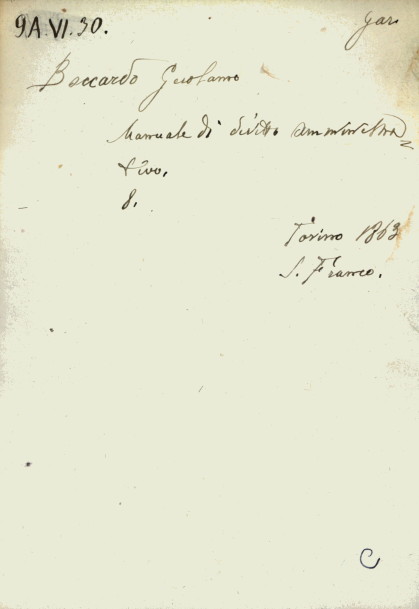 9A.VI.30.
Gar
Boccardo Gerolamo
Manuale di diritto amministra=
tivo.
8.
Torino 1863
S. Franco.
C